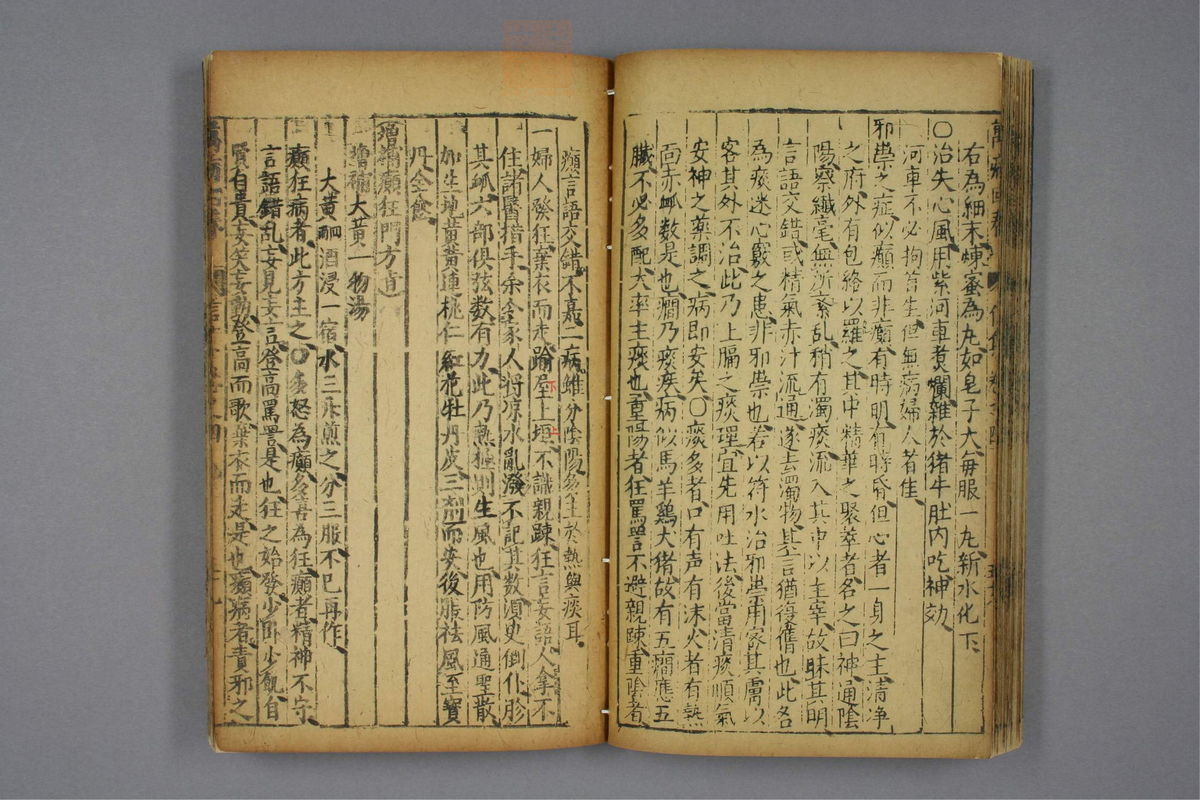 右為細末煉蜜為丸如皂子大每服一丸新水化下
○治失心風用紫河車煮爛雜於猪牛肚内吃神効
河車不必拘首生但無病婦人者佳
邪祟之症似癲而非癲有時明有時昏但心者一身之主清净
之府外有包絡以羅之其中精華之聚萃者名之曰神通陰
陽察纖毫無所紊乱稍有濁痰流入其中以主宰故昧其明
言語交錯或精氣赤汁流通遂去濁物其言猶復舊也此各
為痰迷心竅之患非邪祟也若以符水治邪祟甫客其膚以
客其外不治此乃上膈之痰理宜先用吐法後當清痰順氣
安神之藥調之病即安矣○痰多者口有声有沫火者有熱
面赤脉数是也癎乃痰疾病似馬羊鷄犬猪故有五癎應五
臟不必多配大率主痰也重陽者狂罵詈不避親踈重陰者
癲言語交錯不嘉二病雖分陰陽多主於熱與痰耳
一婦人發狂棄衣而走踰屋上垣不識親踈狂言妄語人拿不
住諸醫措手余令家人將凉水亂潑不記其数須史倒仆胗
其脉六部俱弦数有力此乃熱極則生風也用防風通聖散
加生地黄黄連桃仁紅花牡丹皮三劑而安後服祛風至寶
丹全愈
增補癲狂門方
增補大黄一物湯
大黄 酒浸一宿水三斤煎之分三服不已再作
癲狂病者此方主之○多怒為癲多喜為狂癲者精神不守
言語錯乱妄見妄言登高罵詈是也狂之始發少卧少飢自
賢自貴妄笑妄動登高而歌棄衣而走是也癲病者責邪之